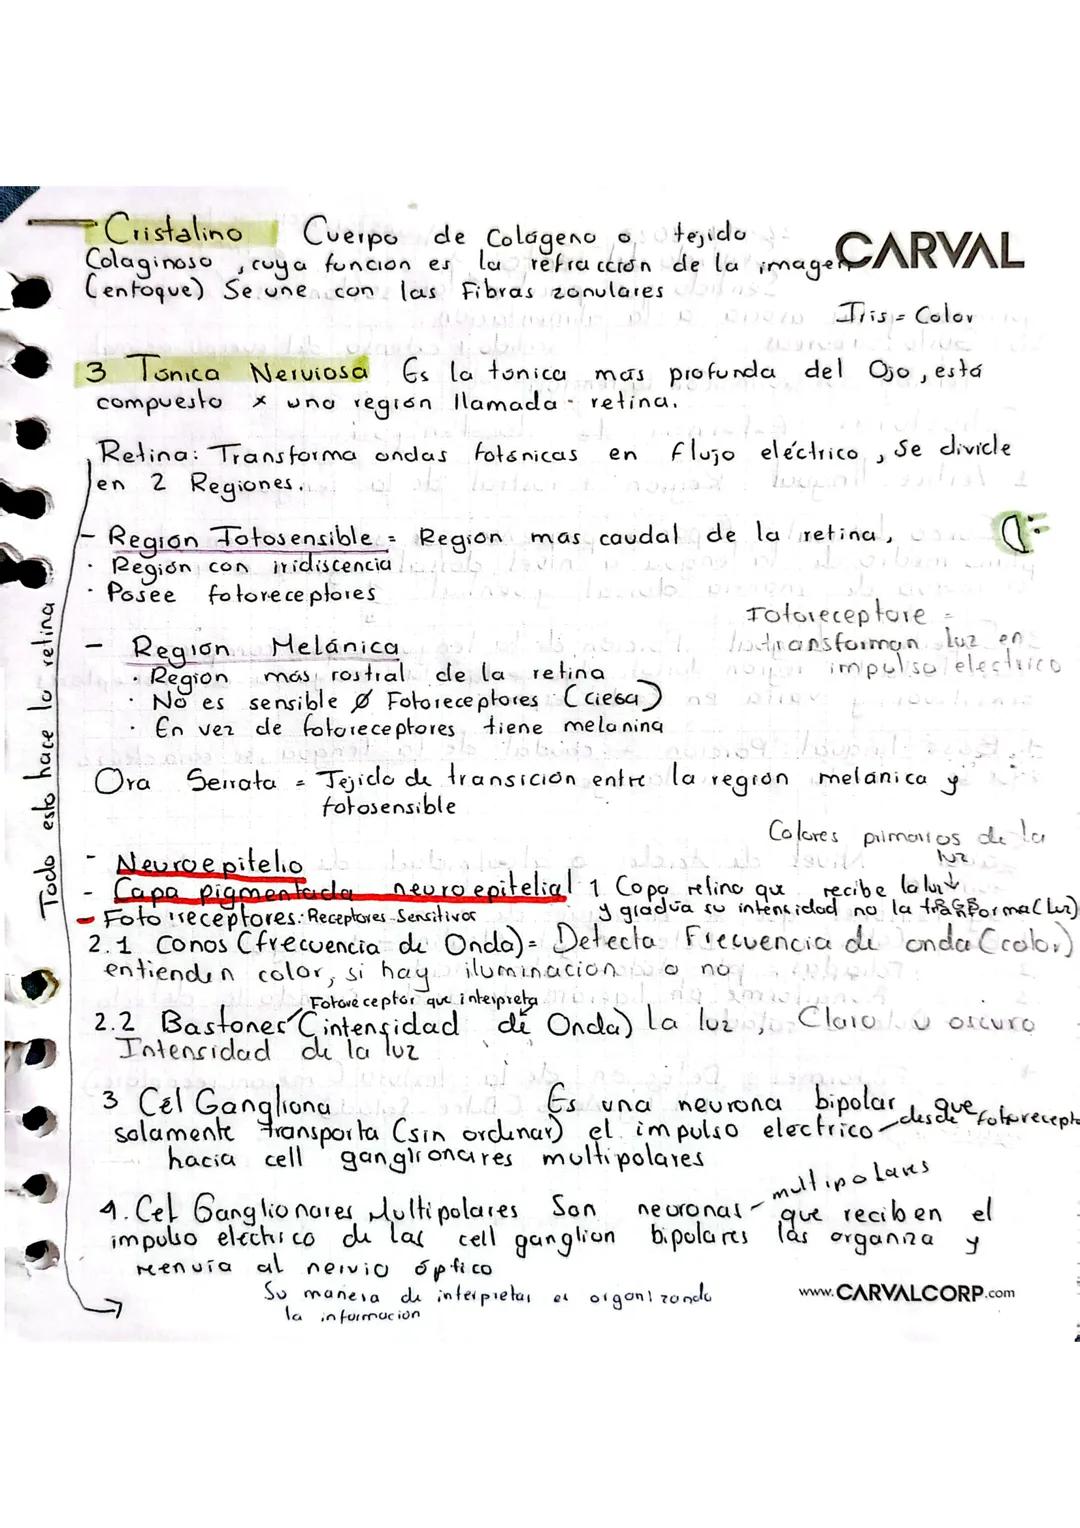 Cristalino Cuerpo de Colágeno o tejido
Colaginoso, cuya funcion es la refracción de la imagen
(enfoque) Se une con las Fibras zonulares
CARVAL
Iris = Color
3 Tunica Nerviosa Es la tunica mas profunda del Ojo, está
compuesto x una región llamada retina.
Retina: Transforma ondas fotónicas en flujo eléctrico, Se divide
en 2 Regiones.
- Region Fotosensible = Region mas caudal de la retina,
· Región con iridiscencia
· Posee fotoreceptores
Fotoreceptore =
transforman luz en
impulso electrico
- Region Melánica
· Region más rostral de la retina
· No es sensible Ø Fotoreceptores (ciega)
· En vez de fotoreceptores tiene melanina
Ora Serrata = Tejido de transición entre la región melánica y
fotosensible
Colores primarios de la
luz
- Neuroepitelio
- Capa pigmentada neuroepitelial 1 Capa retina que recibe la luz
y gradúa su intensidad no la transforma (luz)
RGB
- Fotorreceptores: Receptores Sensitivos
2.1 Conos (frecuencia de Onda) = Detecta Frecuencia de onda (color)
entienden color, si hay iluminacion o no
Fotoreceptor que interpreta
2.2 Bastones (intensidad de Onda) la luz, Claro u oscuro
Intensidad de la luz
3 Cél Gangliona Es una neurona bipolar que
solamente transporta (sin ordenar) el impulso electrico desde fotorecept
hacia cell ganglionares multipolares
4. Cel Ganglionares Multipolares Son neuronas multipolares que reciben el
impulso electrico de las cell ganglion bipolares las organiza y
reenvía al nervio óptico
Su manera de interpretar es organizando
la informacion
Todo esto hace la retina
www.CARVALCORP.com